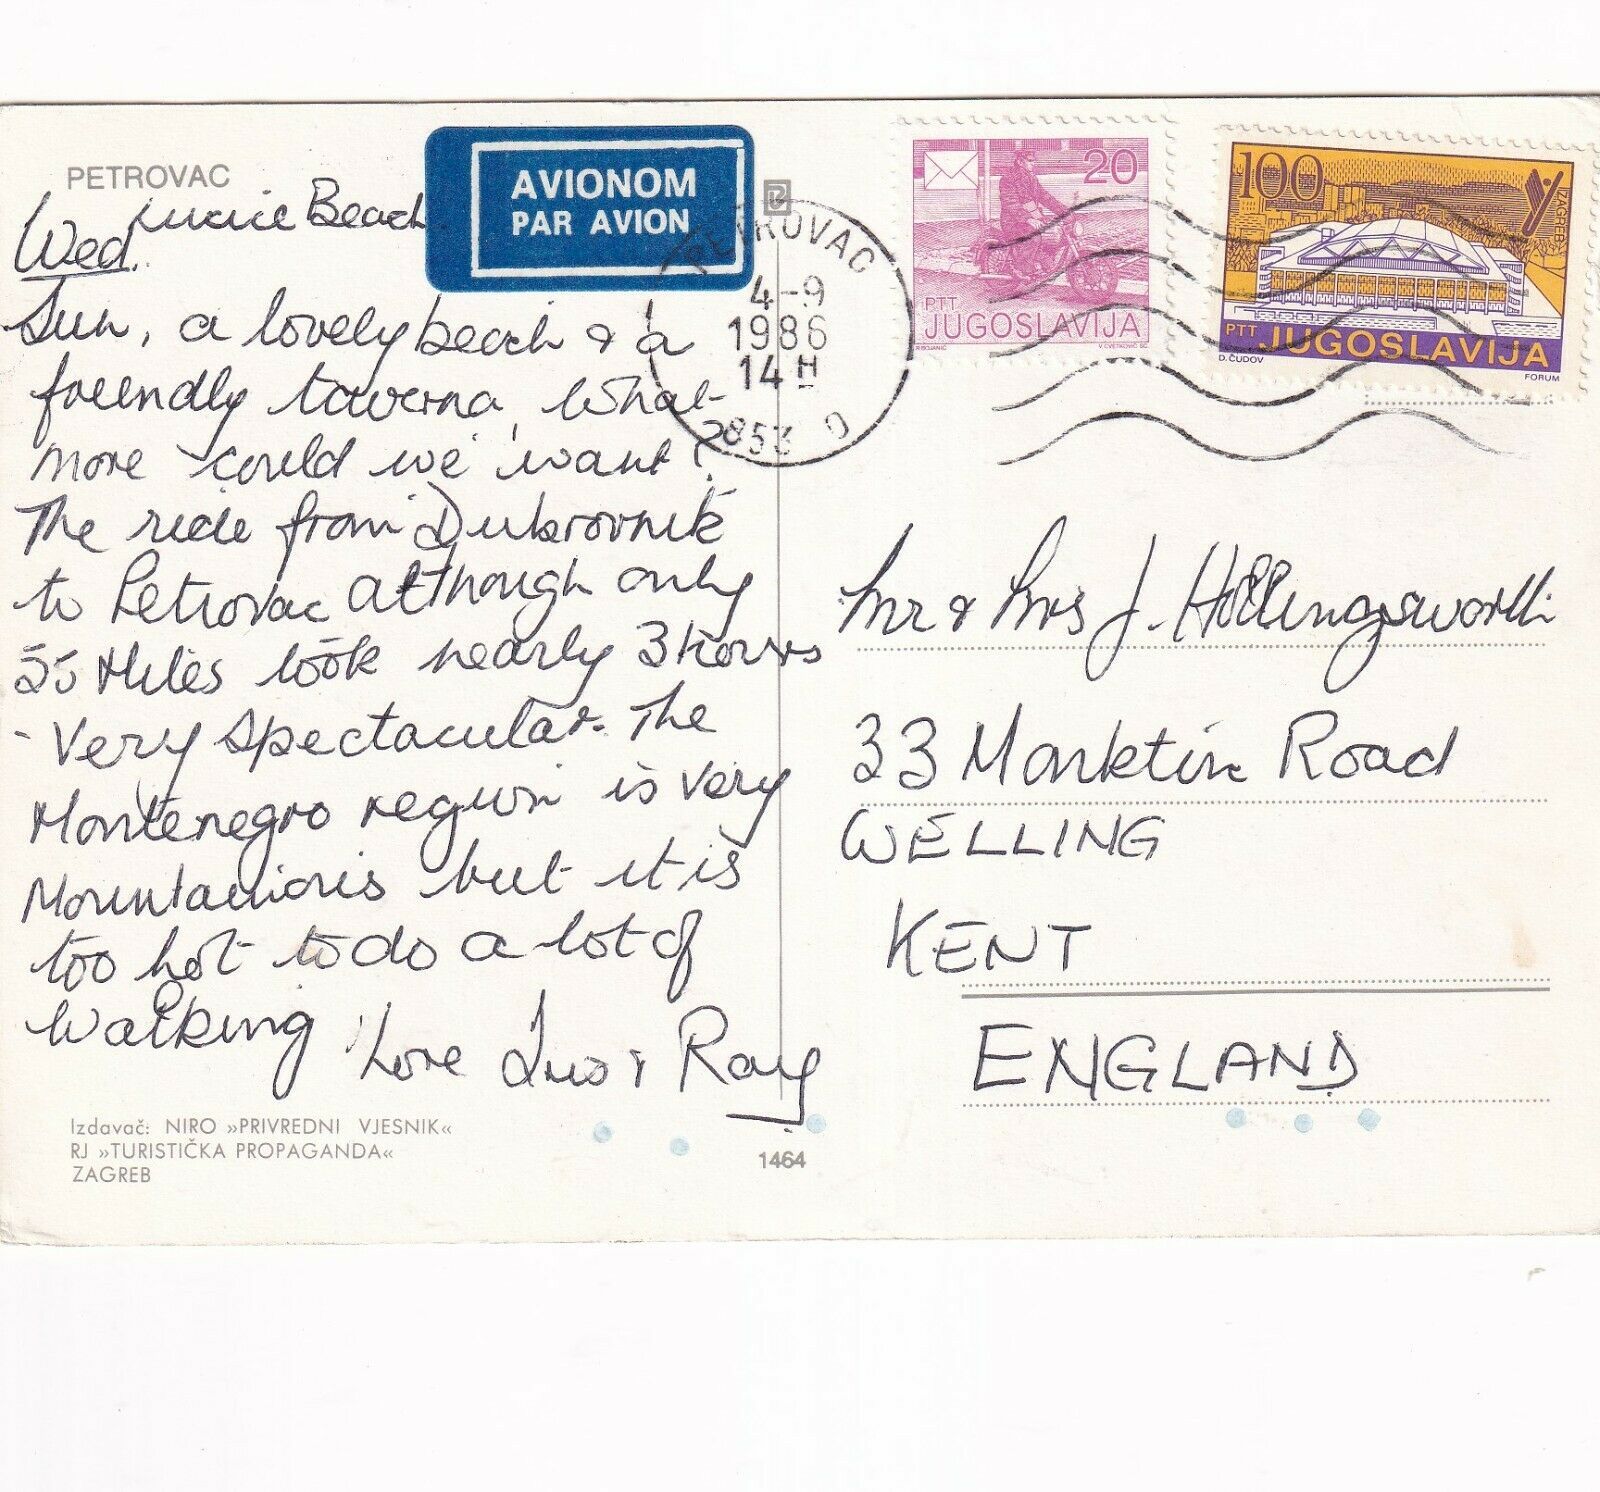 PETROVAC
Beach
Wed.
Sun, a lovely beach & a
friendly taverna, What
more could we want?
The ride from Dubrovnik
to Petrovac although only
Miles took nearly 3 hours
- Very spectacular. The
Montenegro region is very
Mountainious but it is
too hot to do a lot of
Walking
Love & Ray
Izdavač: NIRO »PRIVREDNI VJESNIK«
RJ »TURISTIČKA PROPAGANDA«
ZAGREB
1464
AVIONOM
PAR AVION
PETROVAC
4-9
1986
14 H
853 D
20
PTT
JUGOSLAVIJA
V. CVETKOVIĆ SC.
100
ZAGREB
PTT JUGOSLAVIJA
D. ČUDOV
FORUM
Mr & Mrs J. Hollingsworth
33 Road
WELLING
KENT
ENGLAND